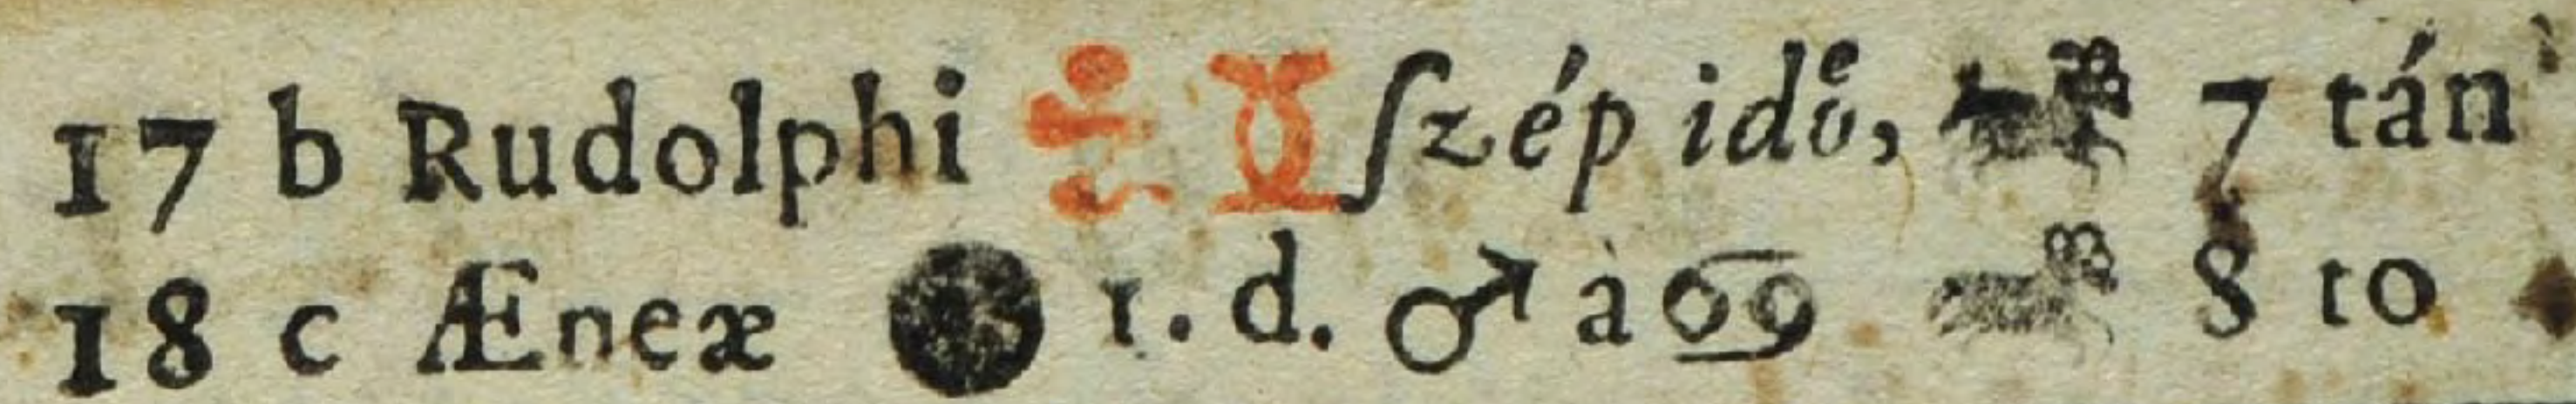 17 b Rudolphi ſzép idoͤ, 7 tán
18 c Æneæ 1. d. ♂ à ♋ 8 to